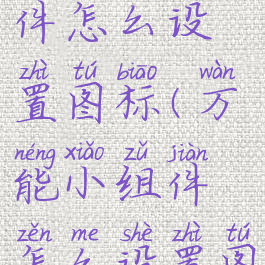 件怎么设
zhì tú biāo wàn
置图标(万
néng xiǎo zǔ jiàn
能小组件
zěn me shè zhì tú
怎么设置图